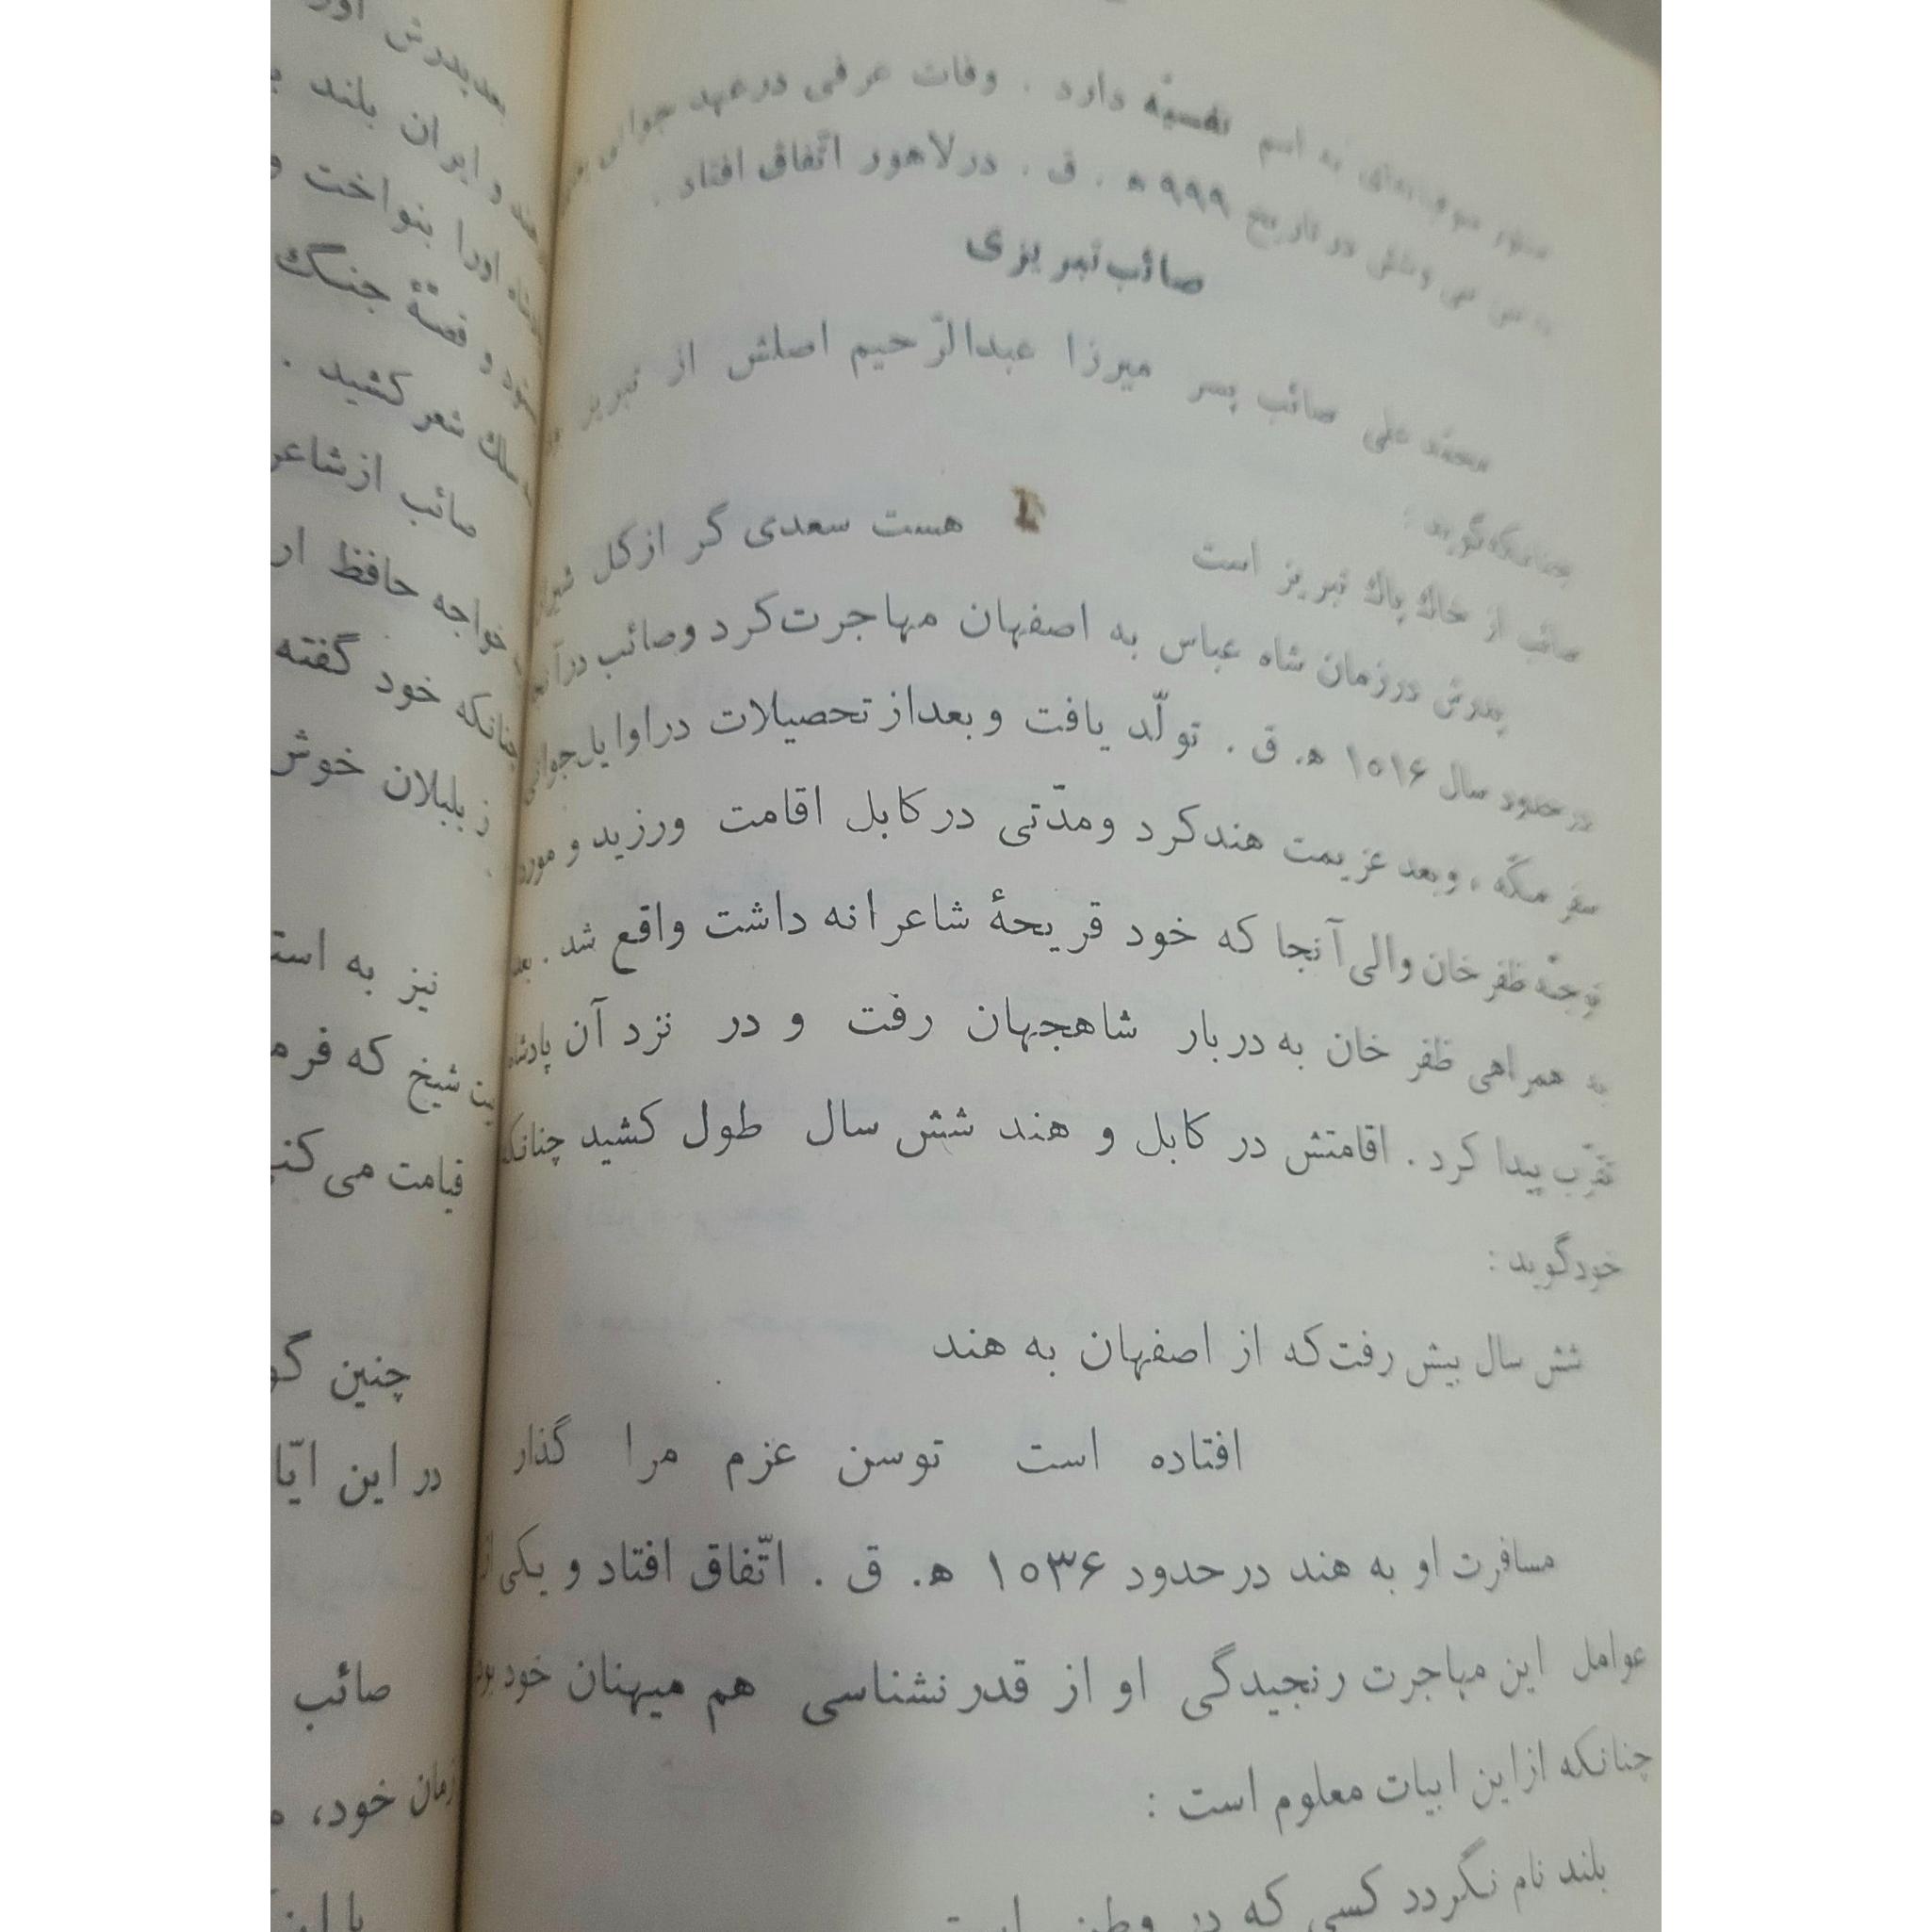 به اسم نفسیّه دارد . وفات عرفی در عهد جوانی
در تاریخ ۹۹۹ ه . ق . در لاهور اتّفاق افتاد .
صائب تبریزی
محمّد علی صائب پسر میرزا عبدالرّحیم اصلش از تبریز
چنانکه گوید :
صائب از خاك پاك تبریز است
هست سعدی گر از گل شیراز
پدرش در زمان شاه عباس به اصفهان مهاجرت کرد و صائب در آنجا
در حدود سال ۱۰۱۶ ه. ق . تولّد یافت و بعد از تحصیلات در اوایل جوانی
سفر مکّه ، و بعد عزیمت هند کرد و مدّتی در کابل اقامت ورزید و مورد
توجّه ظفر خان والی آنجا که خود قریحهٔ شاعرانه داشت واقع شد . بعد
به همراهی ظفر خان به دربار شاهجهان رفت و در نزد آن پادشاه
تقرّب پیدا کرد . اقامتش در کابل و هند شش سال طول کشید چنانکه
خود گوید :
شش سال بیش رفت که از اصفهان به هند
افتاده است توسن عزم مرا گذار
مسافرت او به هند در حدود ۱۰۳۶ ه. ق . اتّفاق افتاد و یکی از
عوامل این مهاجرت رنجیدگی او از قدرنشناسی هم میهنان خود بود
چنانکه از این ابیات معلوم است :
بلند نام نگردد کسی که در وطن است
بعد پدرش
هند و ایران بلند
اورا بنواخت و
و قصّهٔ جنگ
سلك شعر کشید .
صائب از شاعر
خواجه حافظ
چنانکه خود گفته
ز بلبلان خوش
نیز به
شیخ که
قیامت می
چنین
در این
صائب
زمان خود،